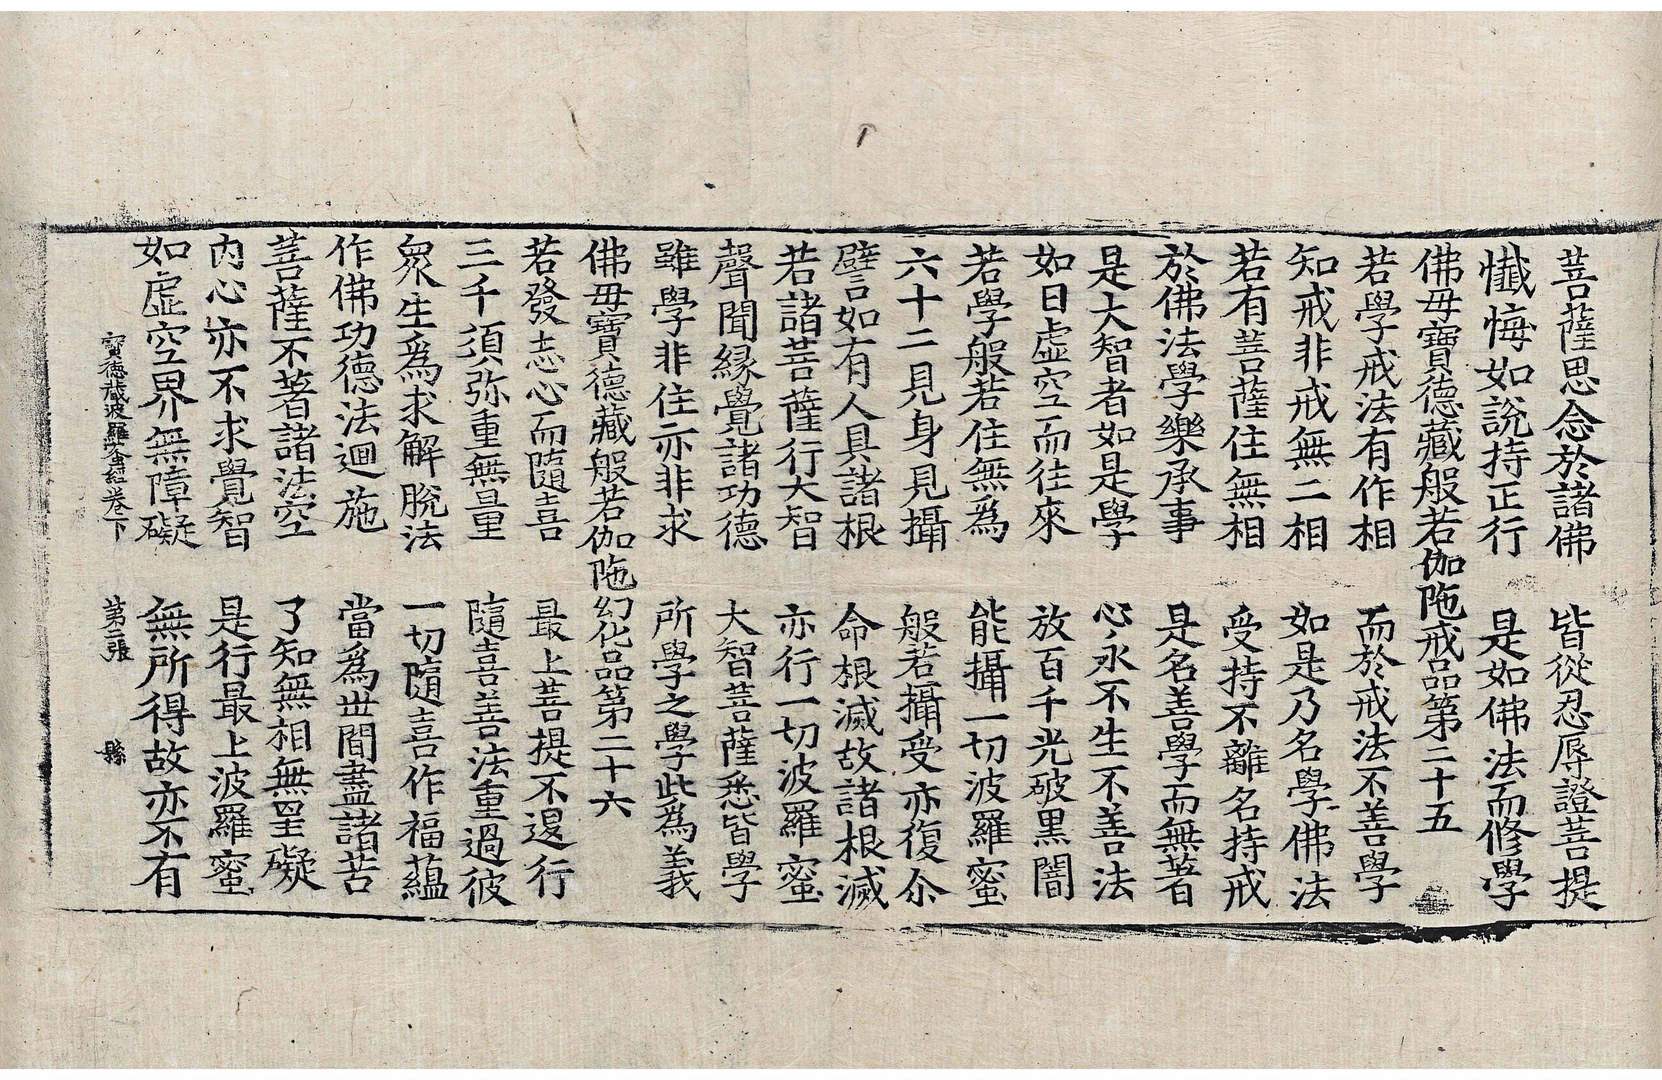 菩薩思念於諸佛　皆從忍辱證菩提
懺悔如說持正行　是如佛法而修學
佛母寶德藏般若伽陁戒品第二十五
若學戒法有作相　而於戒法不善學
知戒非戒無二相　如是乃名學佛法
若有菩薩住無相　受持不離名持戒
於佛法學樂承事　是名善學而無著
是大智者如是學　心永不生不善法
如日虛空而往來　放百千光破黑闇
若學般若住無爲　能攝一切波羅蜜
六十二見身見攝　般若攝受亦復尒
譬如有人具諸根　命根滅故諸根滅
若諸菩薩行大智　亦行一切波羅蜜
聲聞緣覺諸功德　大智菩薩悉皆學
雖學非住亦非求　所學之學此爲義
佛母寶德藏般若伽陁幻化品第二十六
若發志心而隨喜　最上菩提不退行
三千須弥重無量　隨喜善法重過彼
衆生爲求解脫法　一切隨喜作福蘊
作佛功德法迴施　當爲世間盡諸苦
菩薩不著諸法空　了知無相無罣礙
內心亦不求覺智　是行最上波羅蜜
如虛空界無障礙　無所得故亦不有
寶德藏波羅蜜經卷下　第二張　縣